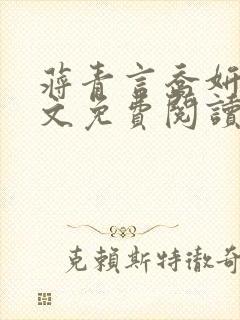 蔣青言喬妍
文免費閱讀
克賴斯特徹奇